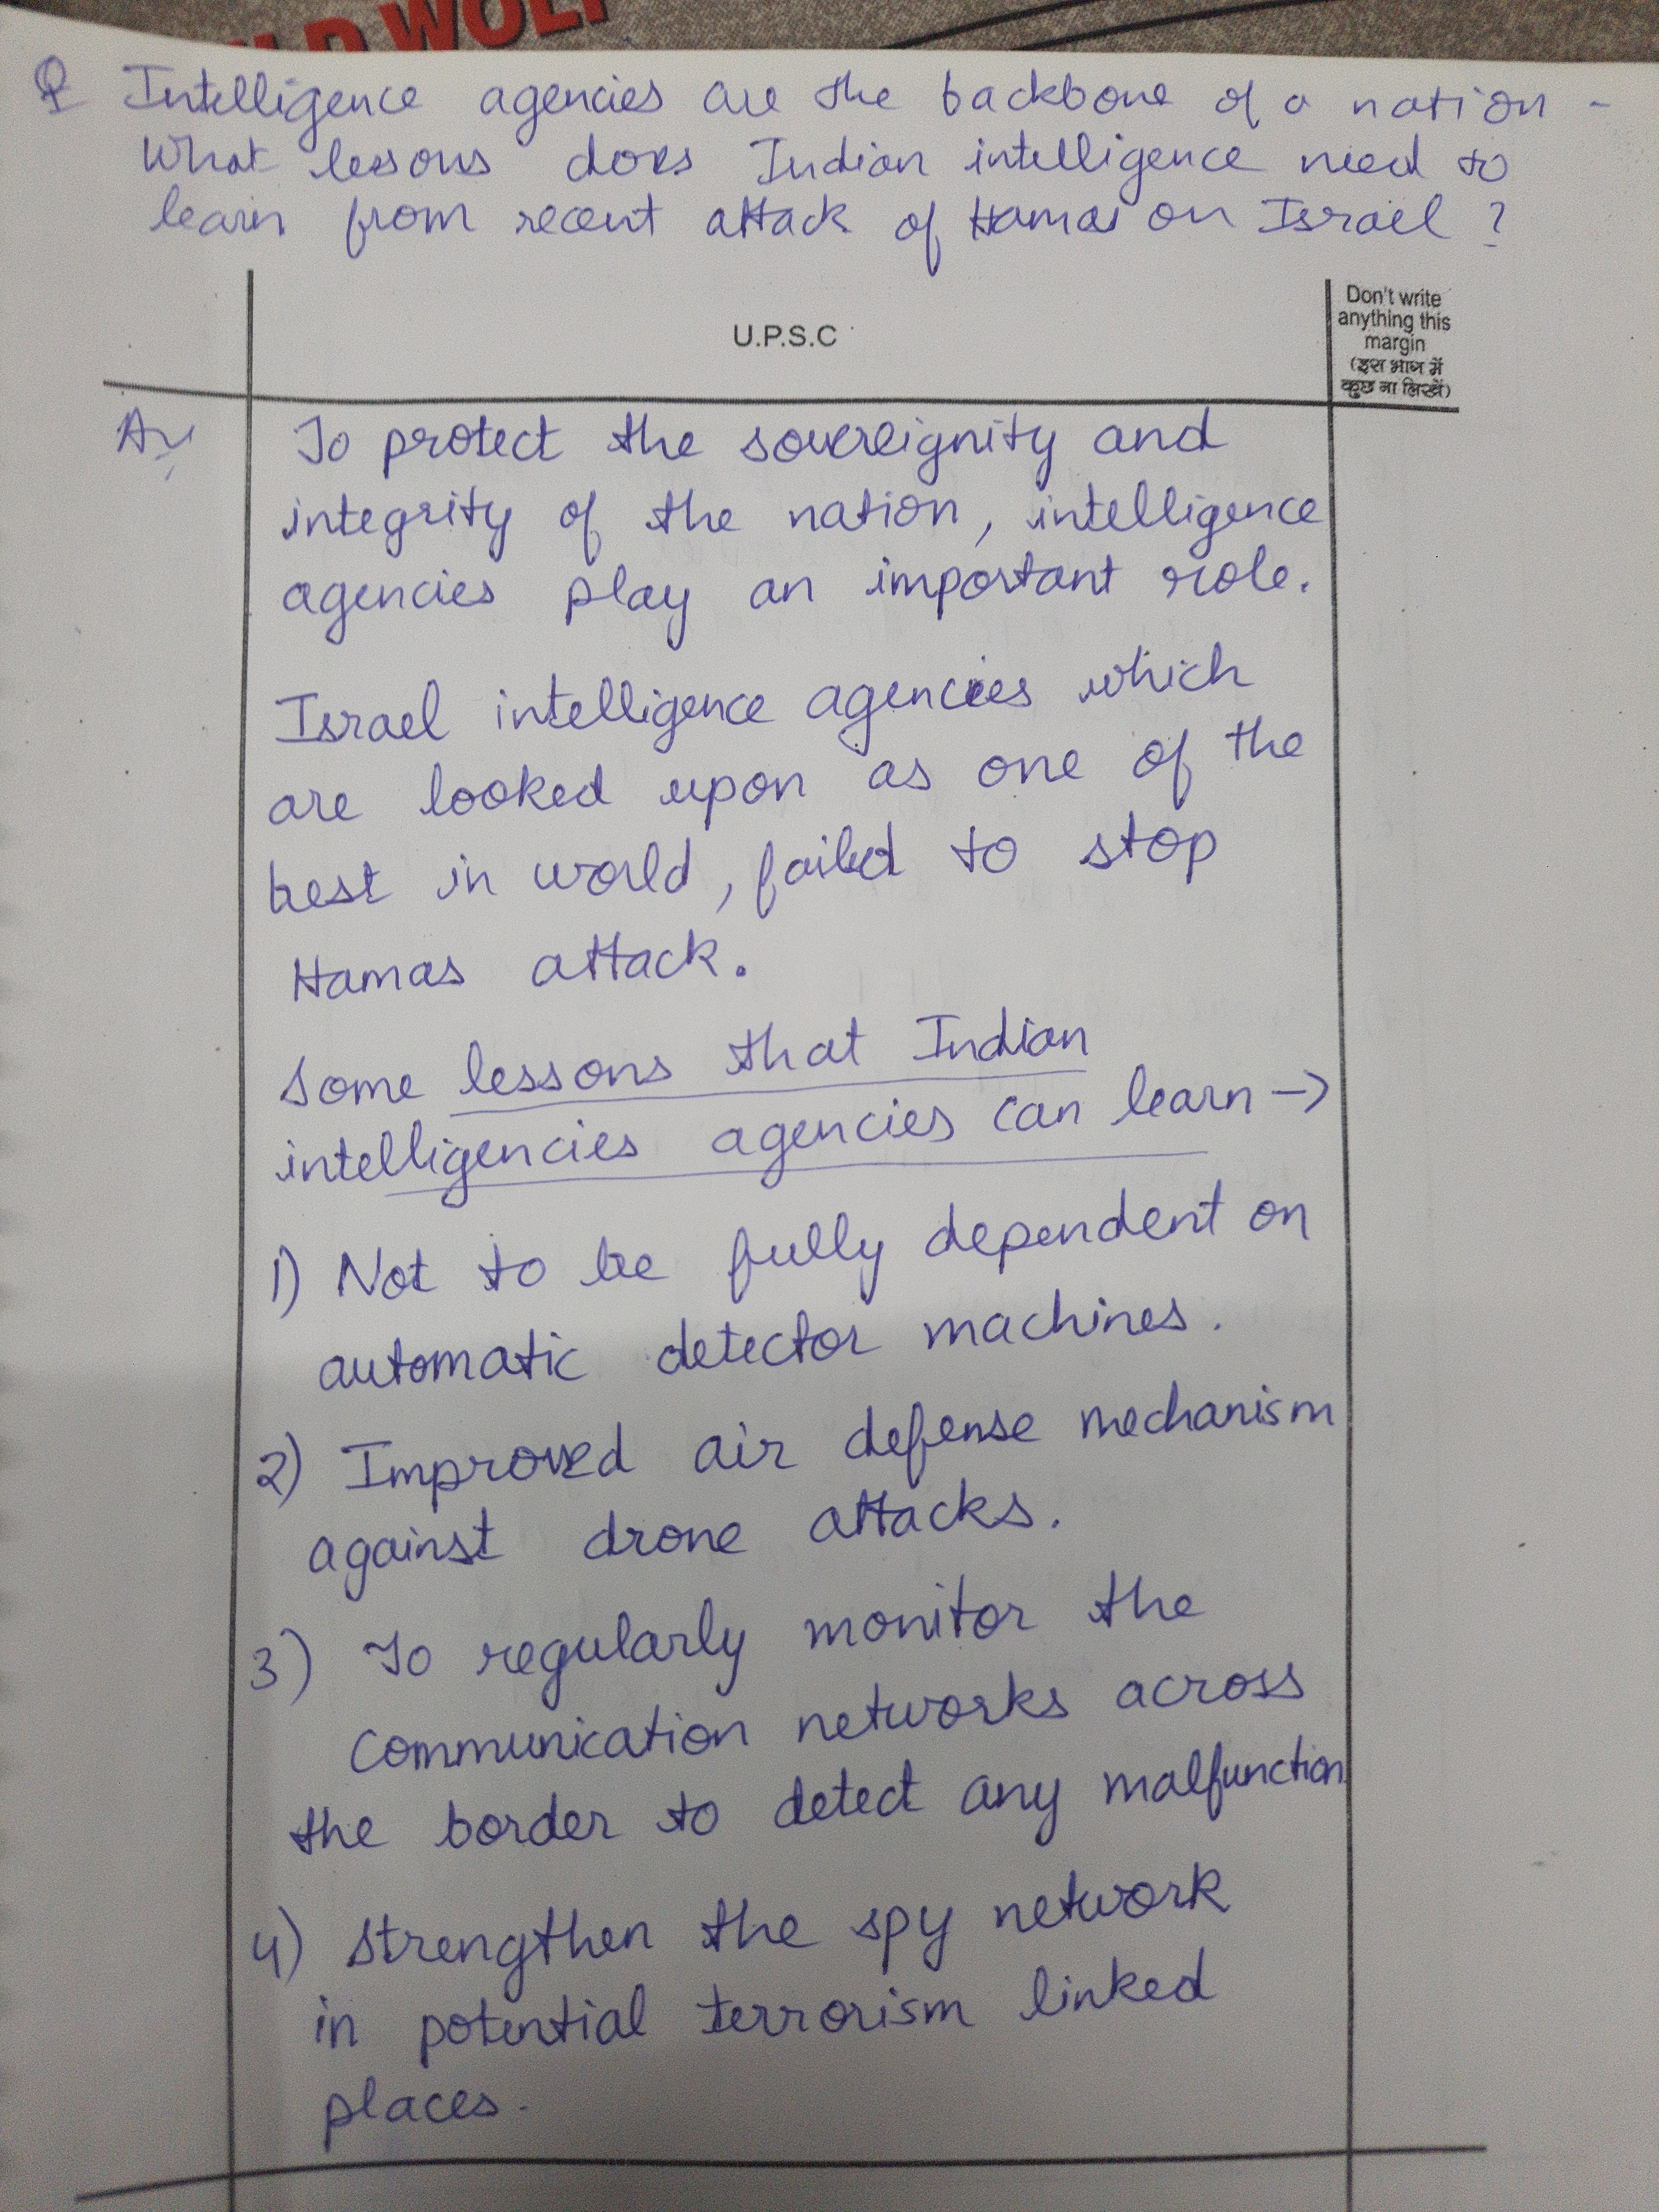 LD WOLF
Q Intelligence agencies are the backbone of a nation -
What lessons does Indian intelligence need to
learn from recent attack of Hamas on Israel ?
U.P.S.C
Don't write
anything this
margin
(इस भाग में
कुछ ना लिखें)
To protect the sovereignity and
integrity of the nation, intelligence
agencies play an important role.
Israel intelligence agencies which
are looked upon as one of the
best in world, failed to stop
Hamas attack.
Some lessons that Indian
intelligencies agencies can learn →
1) Not to be fully dependent on
automatic detector machines.
2) Improved air defense mechanism
against drone attacks.
3) To regularly monitor the
communication networks across
the border to detect any malfunction.
4) Strengthen the spy network
in potential terrorism linked
places.